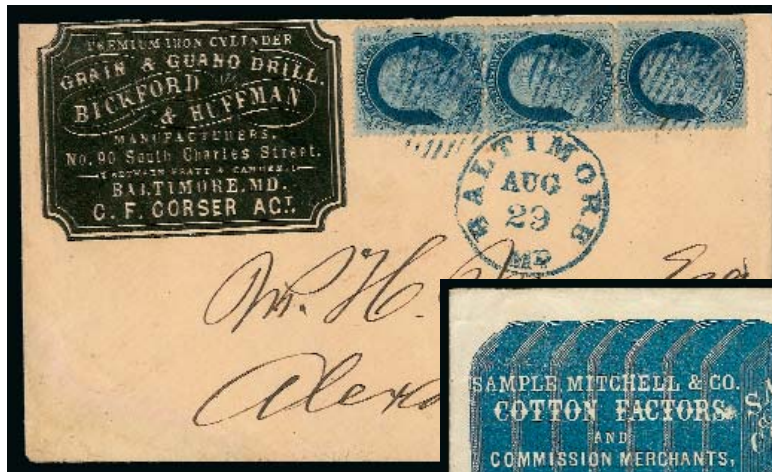 PREMIUM IRON CYLINDER
GRAIN & GUANO DRILL.
BICKFORD
& HUFFMAN
MANUFACTURERS,
No. 90 South Charles Street.
BETWEEN PRATT & CAMDEN
BALTIMORE, MD.
C. F. CORSER ACT.
BALTIMORE
AUG
29
MD
H.
Esq
SAMPLE MITCHELL & CO.
COTTON FACTORS
AND
COMMISSION MERCHANTS,